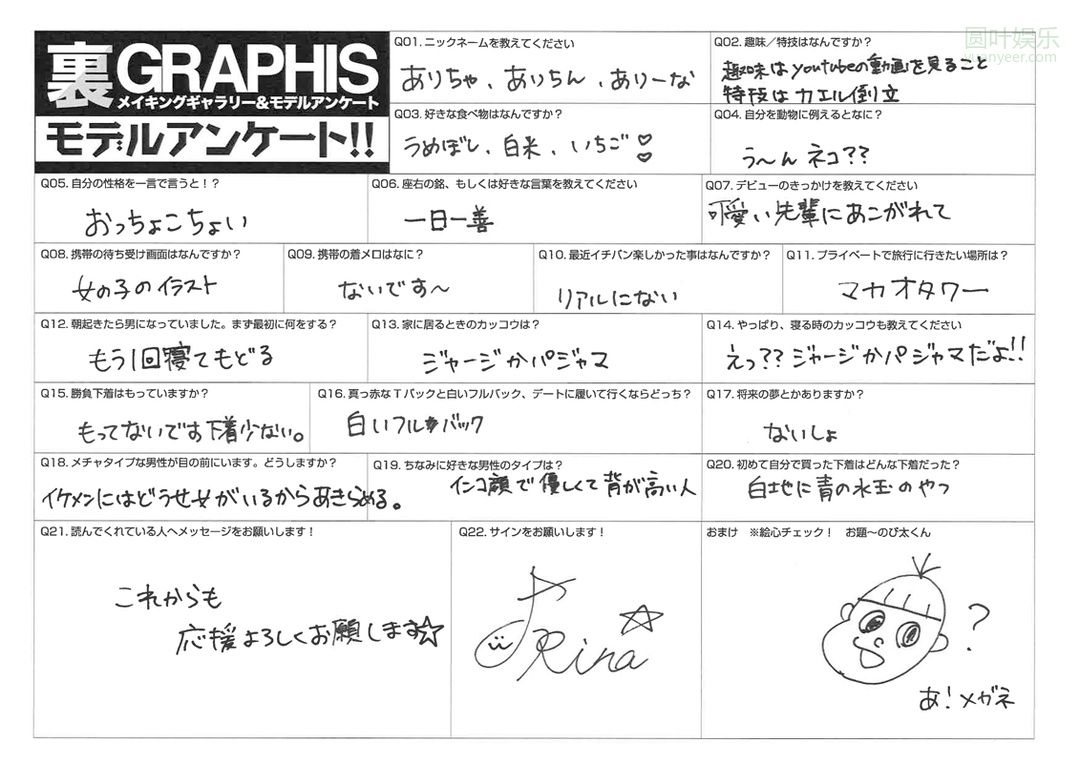 圆叶娱乐
yuanyeer.com
裏GRAPHIS
メイキングギャラリー&モデルアンケート
モデルアンケート!!
Q01. ニックネームを教えてください
ありちゃ、ありちん、ありーな
Q02. 趣味／特技はなんですか？
趣味はyoutubeの動画を見ること
特技は カエル倒立
Q03. 好きな食べ物はなんですか？
うめぼし、白米、いちご♡♡
Q04. 自分を動物に例えるとなに？
う～ん ネコ??
Q05. 自分の性格を一言で言うと！？
おっちょこちょい
Q06. 座右の銘、もしくは好きな言葉を教えてください
一日一善
Q07. デビューのきっかけを教えてください
可愛い先輩にあこがれて
Q08. 携帯の待ち受け画面はなんですか？
女の子のイラスト
Q09. 携帯の着メロはなに？
ないです～
Q10. 最近イチバン楽しかった事はなんですか？
リアルにない
Q11. プライベートで旅行に行きたい場所は？
マカオタワー
Q12. 朝起きたら男になっていました。まず最初に何をする？
もう1回寝てもどる
Q13. 家に居るときのカッコウは？
ジャージかパジャマ
Q14. やっぱり、寝る時のカッコウも教えてください
えっ??ジャージかパジャマだよ!!
Q15. 勝負下着はもっていますか？
もってないです下着少ない。
Q16. 真っ赤なTバックと白いフルバック、デートに履いて行くならどっち？
白いフルバック
Q17. 将来の夢とかありますか？
ないしょ
Q18. メチャタイプな男性が目の前にいます。どうしますか？
イケメンにはどうせ女がいるからあきらめる。
Q19. ちなみに好きな男性のタイプは？
インコ顔で優しくて背が高い人
Q20. 初めて自分で買った下着はどんな下着だった？
白地に青の水玉のやつ
Q21. 読んでくれている人へメッセージをお願いします！
これからも
応援よろしくお願します☆
Q22. サインをお願いします！
Rina☆
おまけ ※絵心チェック！ お題～のび太くん
?
あ!メガネ